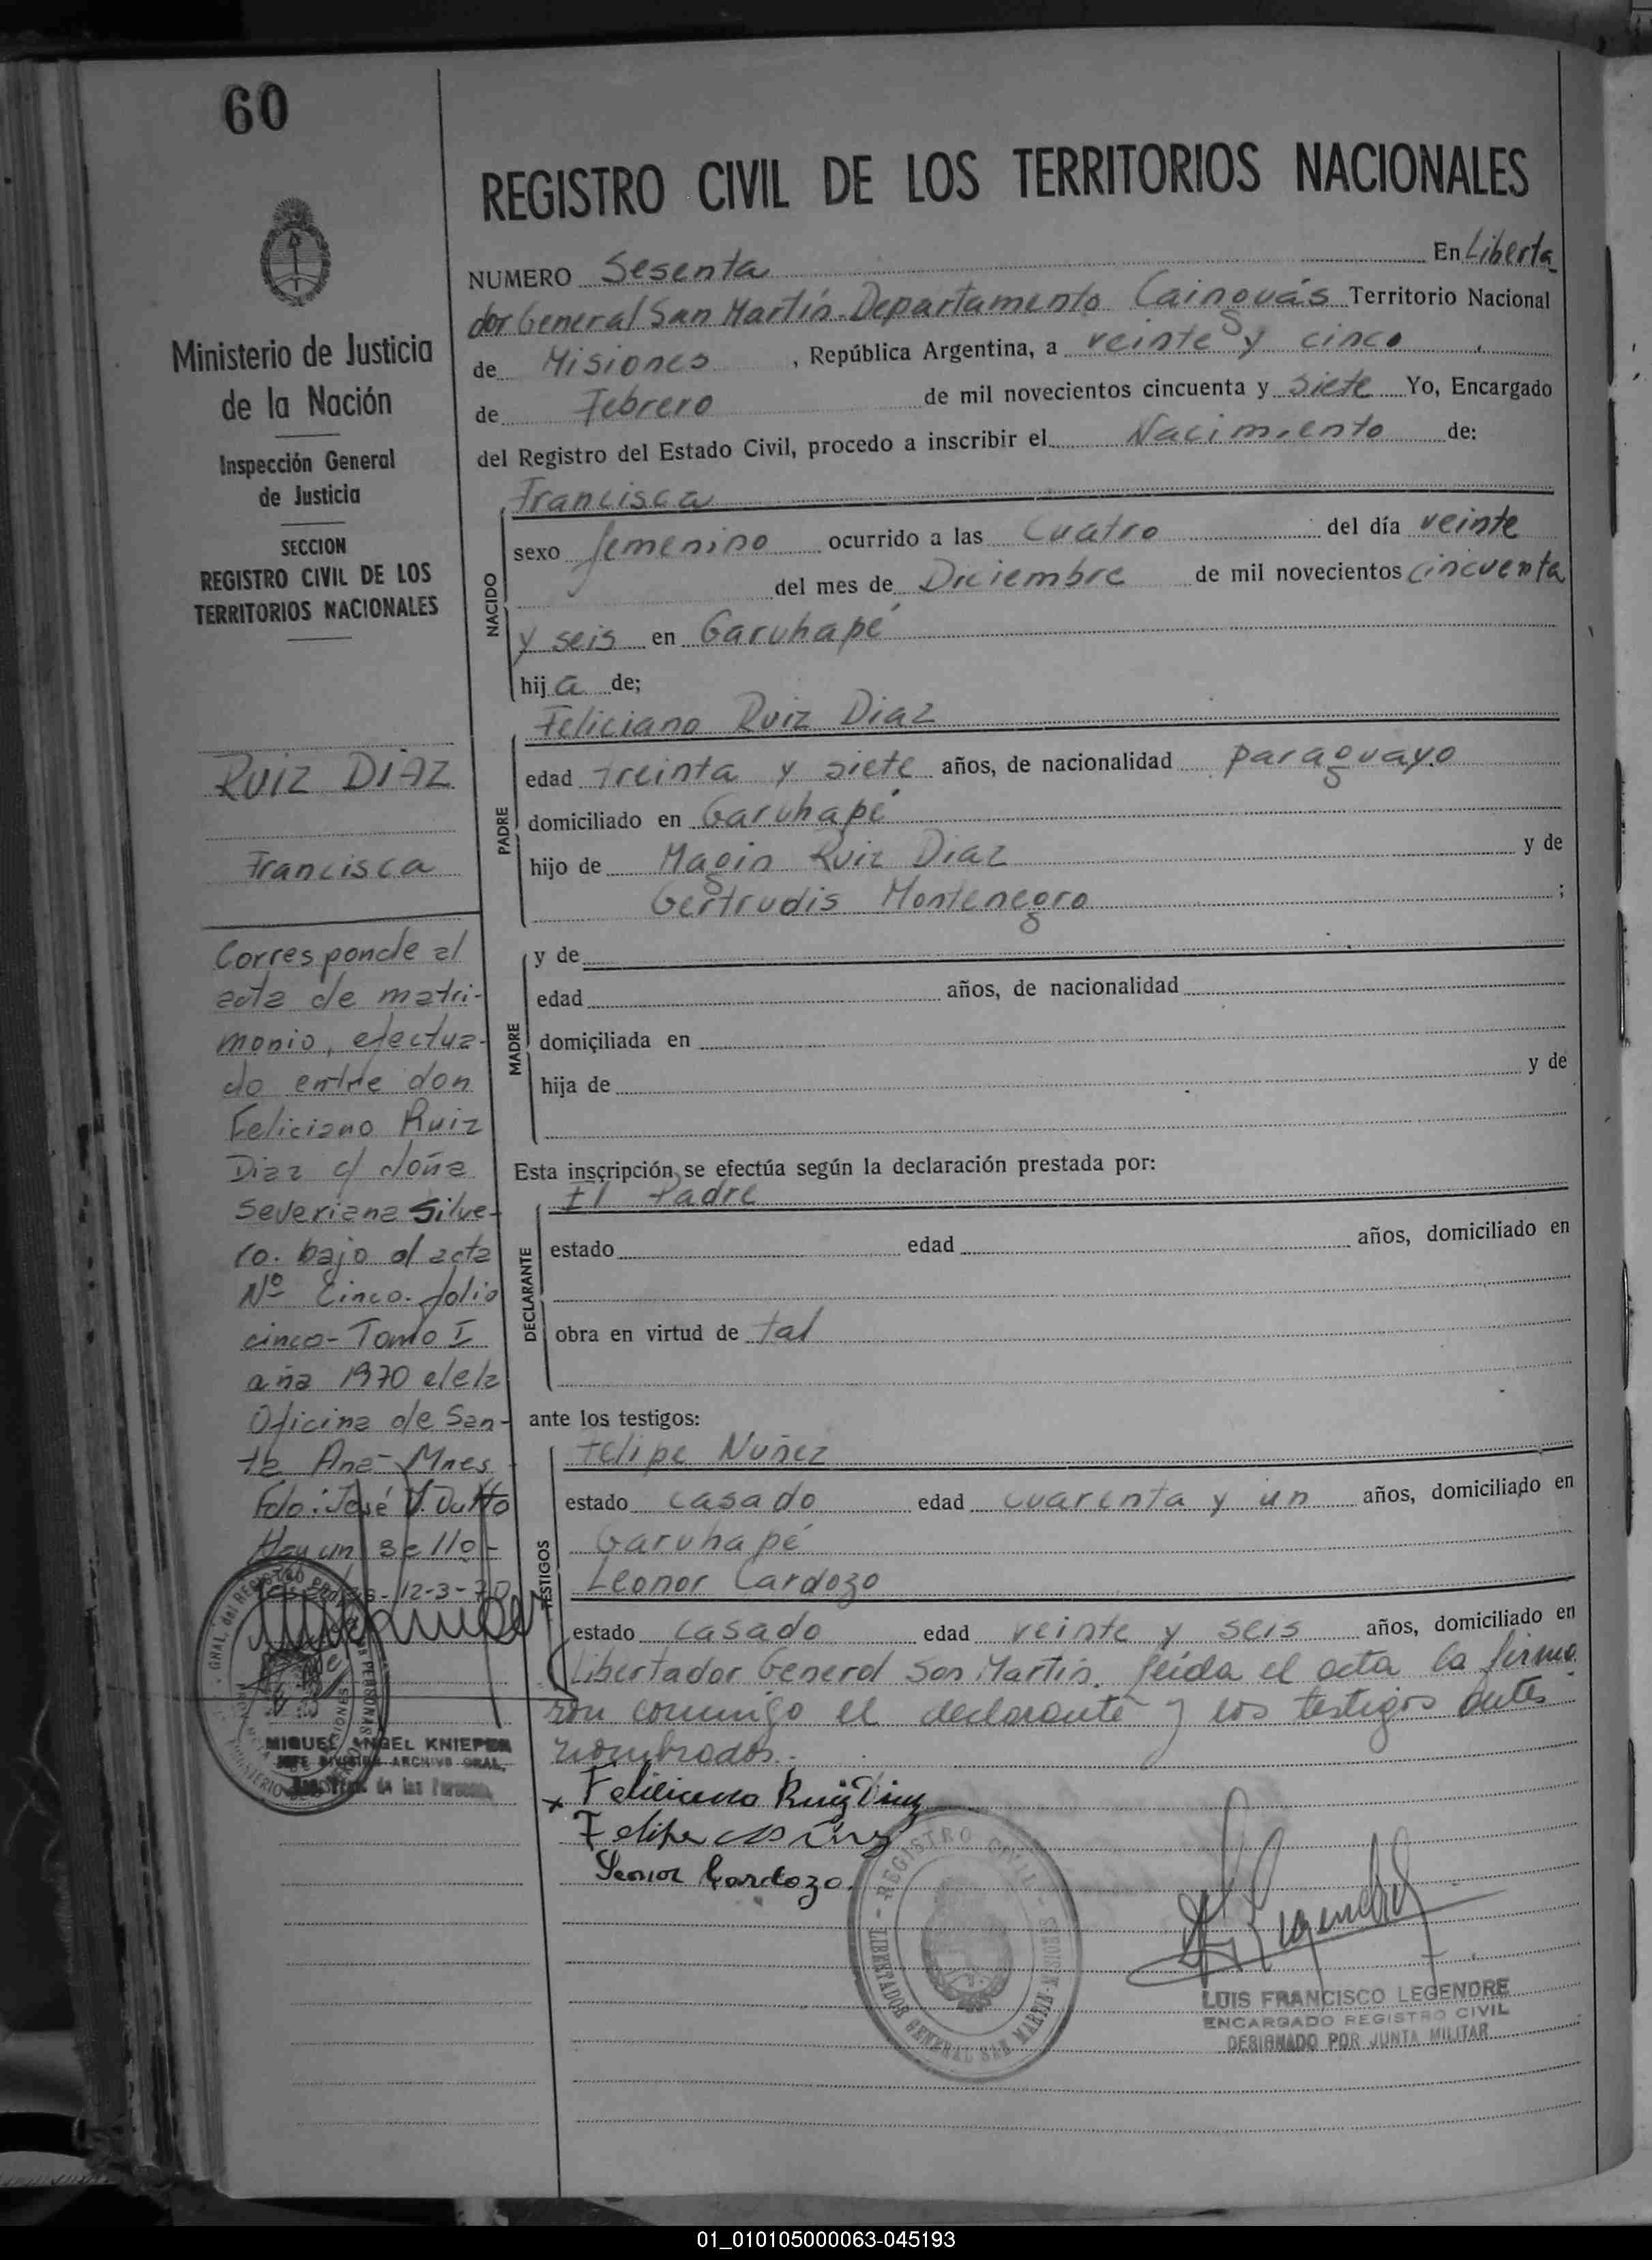 60
REGISTRO CIVIL DE LOS TERRITORIOS NACIONALES
Ministerio de Justicia
de la Nación
Inspección General
de Justicia
SECCION
REGISTRO CIVIL DE LOS
TERRITORIOS NACIONALES
RUIZ DIAZ
Francisca
Corresponde al
acta de matri-
monio, efectua-
do entre don
Feliciano Ruiz
Diaz c/ doña
Severiana Silve-
ro. bajo el acta
Nº Cinco. folio
cinco- Tomo I
año 1970 de la
Oficina de San-
ta Ana- Mnes
Fdo: José V. Dutto
Hay un sello-
12-3-70
MIGUEL ANGEL KNIEPER
JEFE DIVISION ARCHIVO GRAL.
de las Personas
NUMERO Sesenta En Liberta
dor General San Martín-Departamento Cainguás Territorio Nacional
de Misiones, República Argentina, a veinte y cinco
de Febrero de mil novecientos cincuenta y siete Yo, Encargado
del Registro del Estado Civil, procedo a inscribir el Nacimiento de:
NACIDO
Francisca
sexo femenino ocurrido a las Cuatro del día veinte
del mes de Diciembre de mil novecientos cincuenta
y seis en Garuhapé
hija de;
PADRE
Feliciano Ruiz Diaz
edad treinta y siete años, de nacionalidad paraguayo
domiciliado en Garuhapé
hijo de Magin Ruiz Diaz y de
Gertrudis Montenegro ;
MADRE
y de
edad años, de nacionalidad
domiciliada en
hija de y de
Esta inscripción se efectúa según la declaración prestada por:
DECLARANTE
El Padre
estado edad años, domiciliado en
obra en virtud de tal
ante los testigos:
TESTIGOS
Felipe Nuñez
estado casado edad cuarenta y un años, domiciliado en
Garuhapé
Leonor Cardozo
estado casado edad veinte y seis años, domiciliado en
Libertador General San Martín. Leída el acta la firma
ron conmigo el declarante y los testigos antes
nombrados.
x Feliciano Ruiz Diaz
Felipe
Leonor Cardozo.
REGISTRO CIVIL - LIBERTADOR GENERAL SAN MARTIN - MISIONES
LUIS FRANCISCO LEGENDRE
ENCARGADO REGISTRO CIVIL
DESIGNADO POR JUNTA MILITAR
01_010105000063-045193